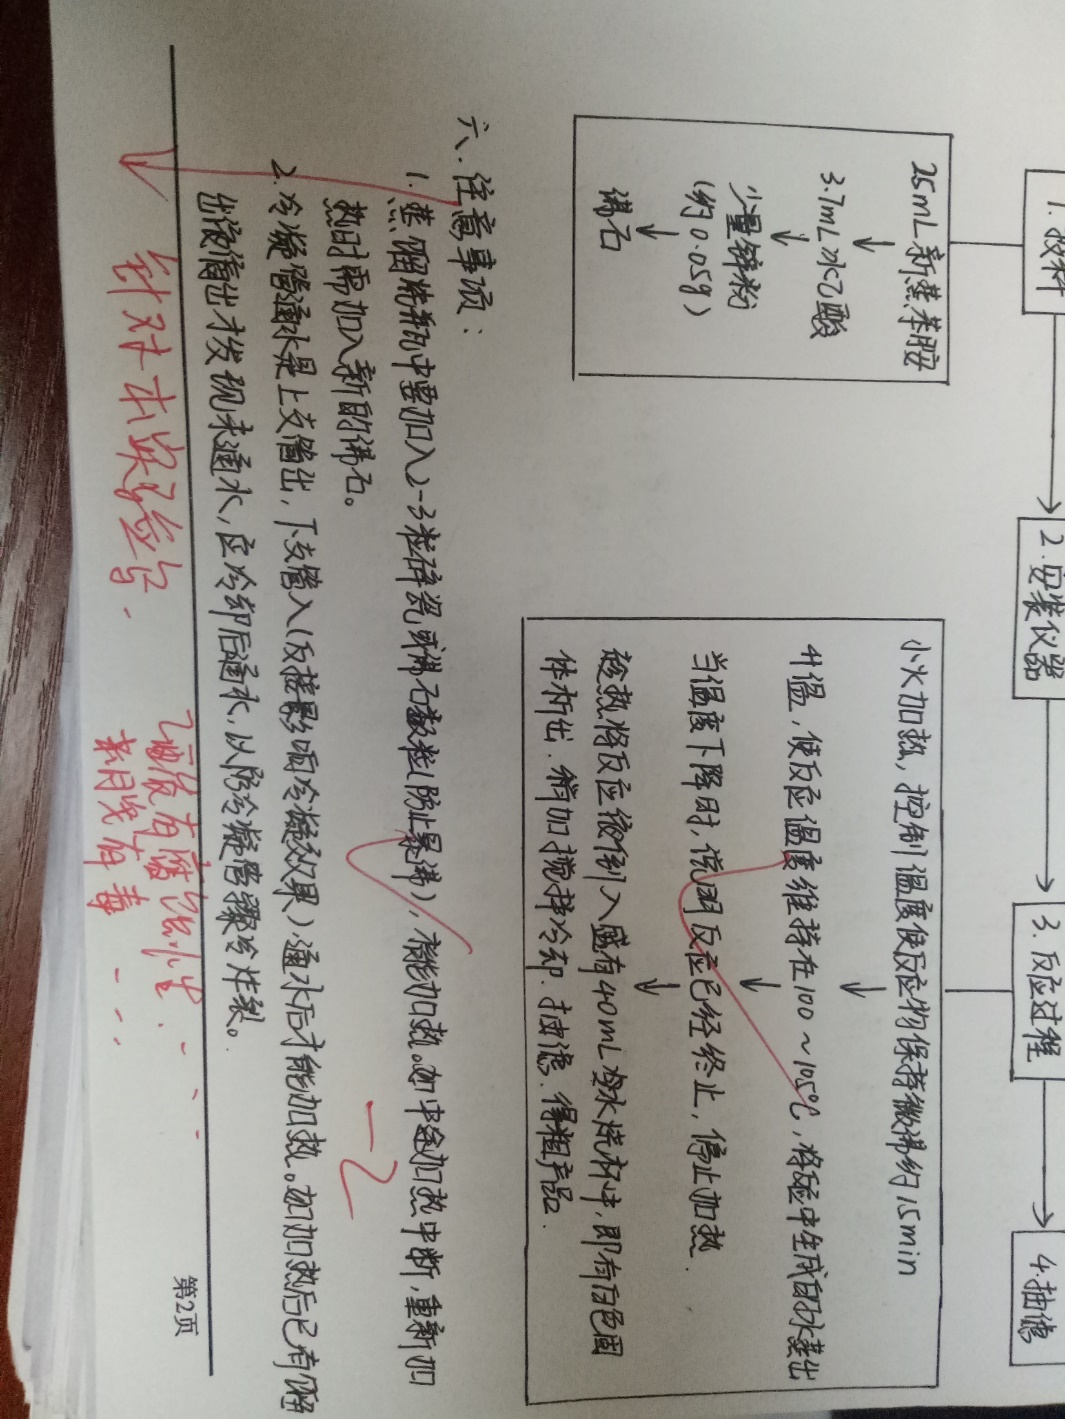 1.投料
2.安装仪器
3.反应过程
4.抽滤
25mL新蒸苯胺
3.7mL冰乙酸
少量锌粉
(约0.05g)
沸石
小火加热,控制温度使反应物保持微沸约15min
升温,使反应温度维持在100~105℃,将反应中生成的水蒸出
当温度下降时,说明反应已经终止,停止加热.
趁热将反应液倒入盛有40mL冷水烧杯中,即有白色固
体析出.稍加搅拌冷却.抽滤.得粗产品.
六.注意事项:
1.蒸馏烧瓶中要加入2-3粒碎瓷或沸石数粒(防止暴沸),才能加热。如中途加热中断,重新加
热时需加入新的沸石。
2.冷凝管通水是上支管出,下支管入(反接影响冷凝效果),通水后才能加热。如加热后已有馏
出液馏出才发现未通水,应冷却后通水,以防冷凝管骤冷炸裂。
-2
针对本实验写.
乙酸有腐蚀性.---
苯胺有毒---
第2页